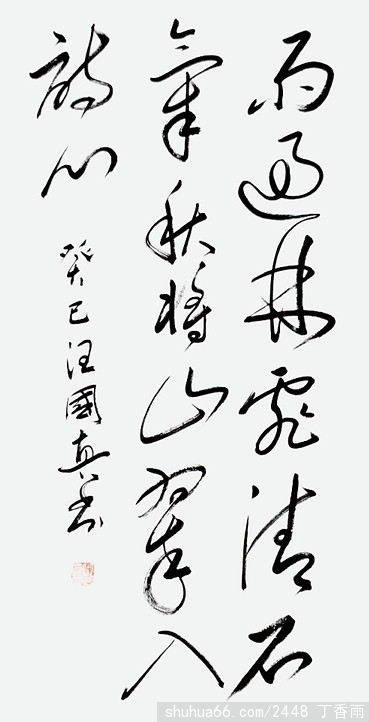 雨過林霏清石
氣秋將山翠入
詩心
癸巳汪國真書
shuhua66.com/2448 丁香雨